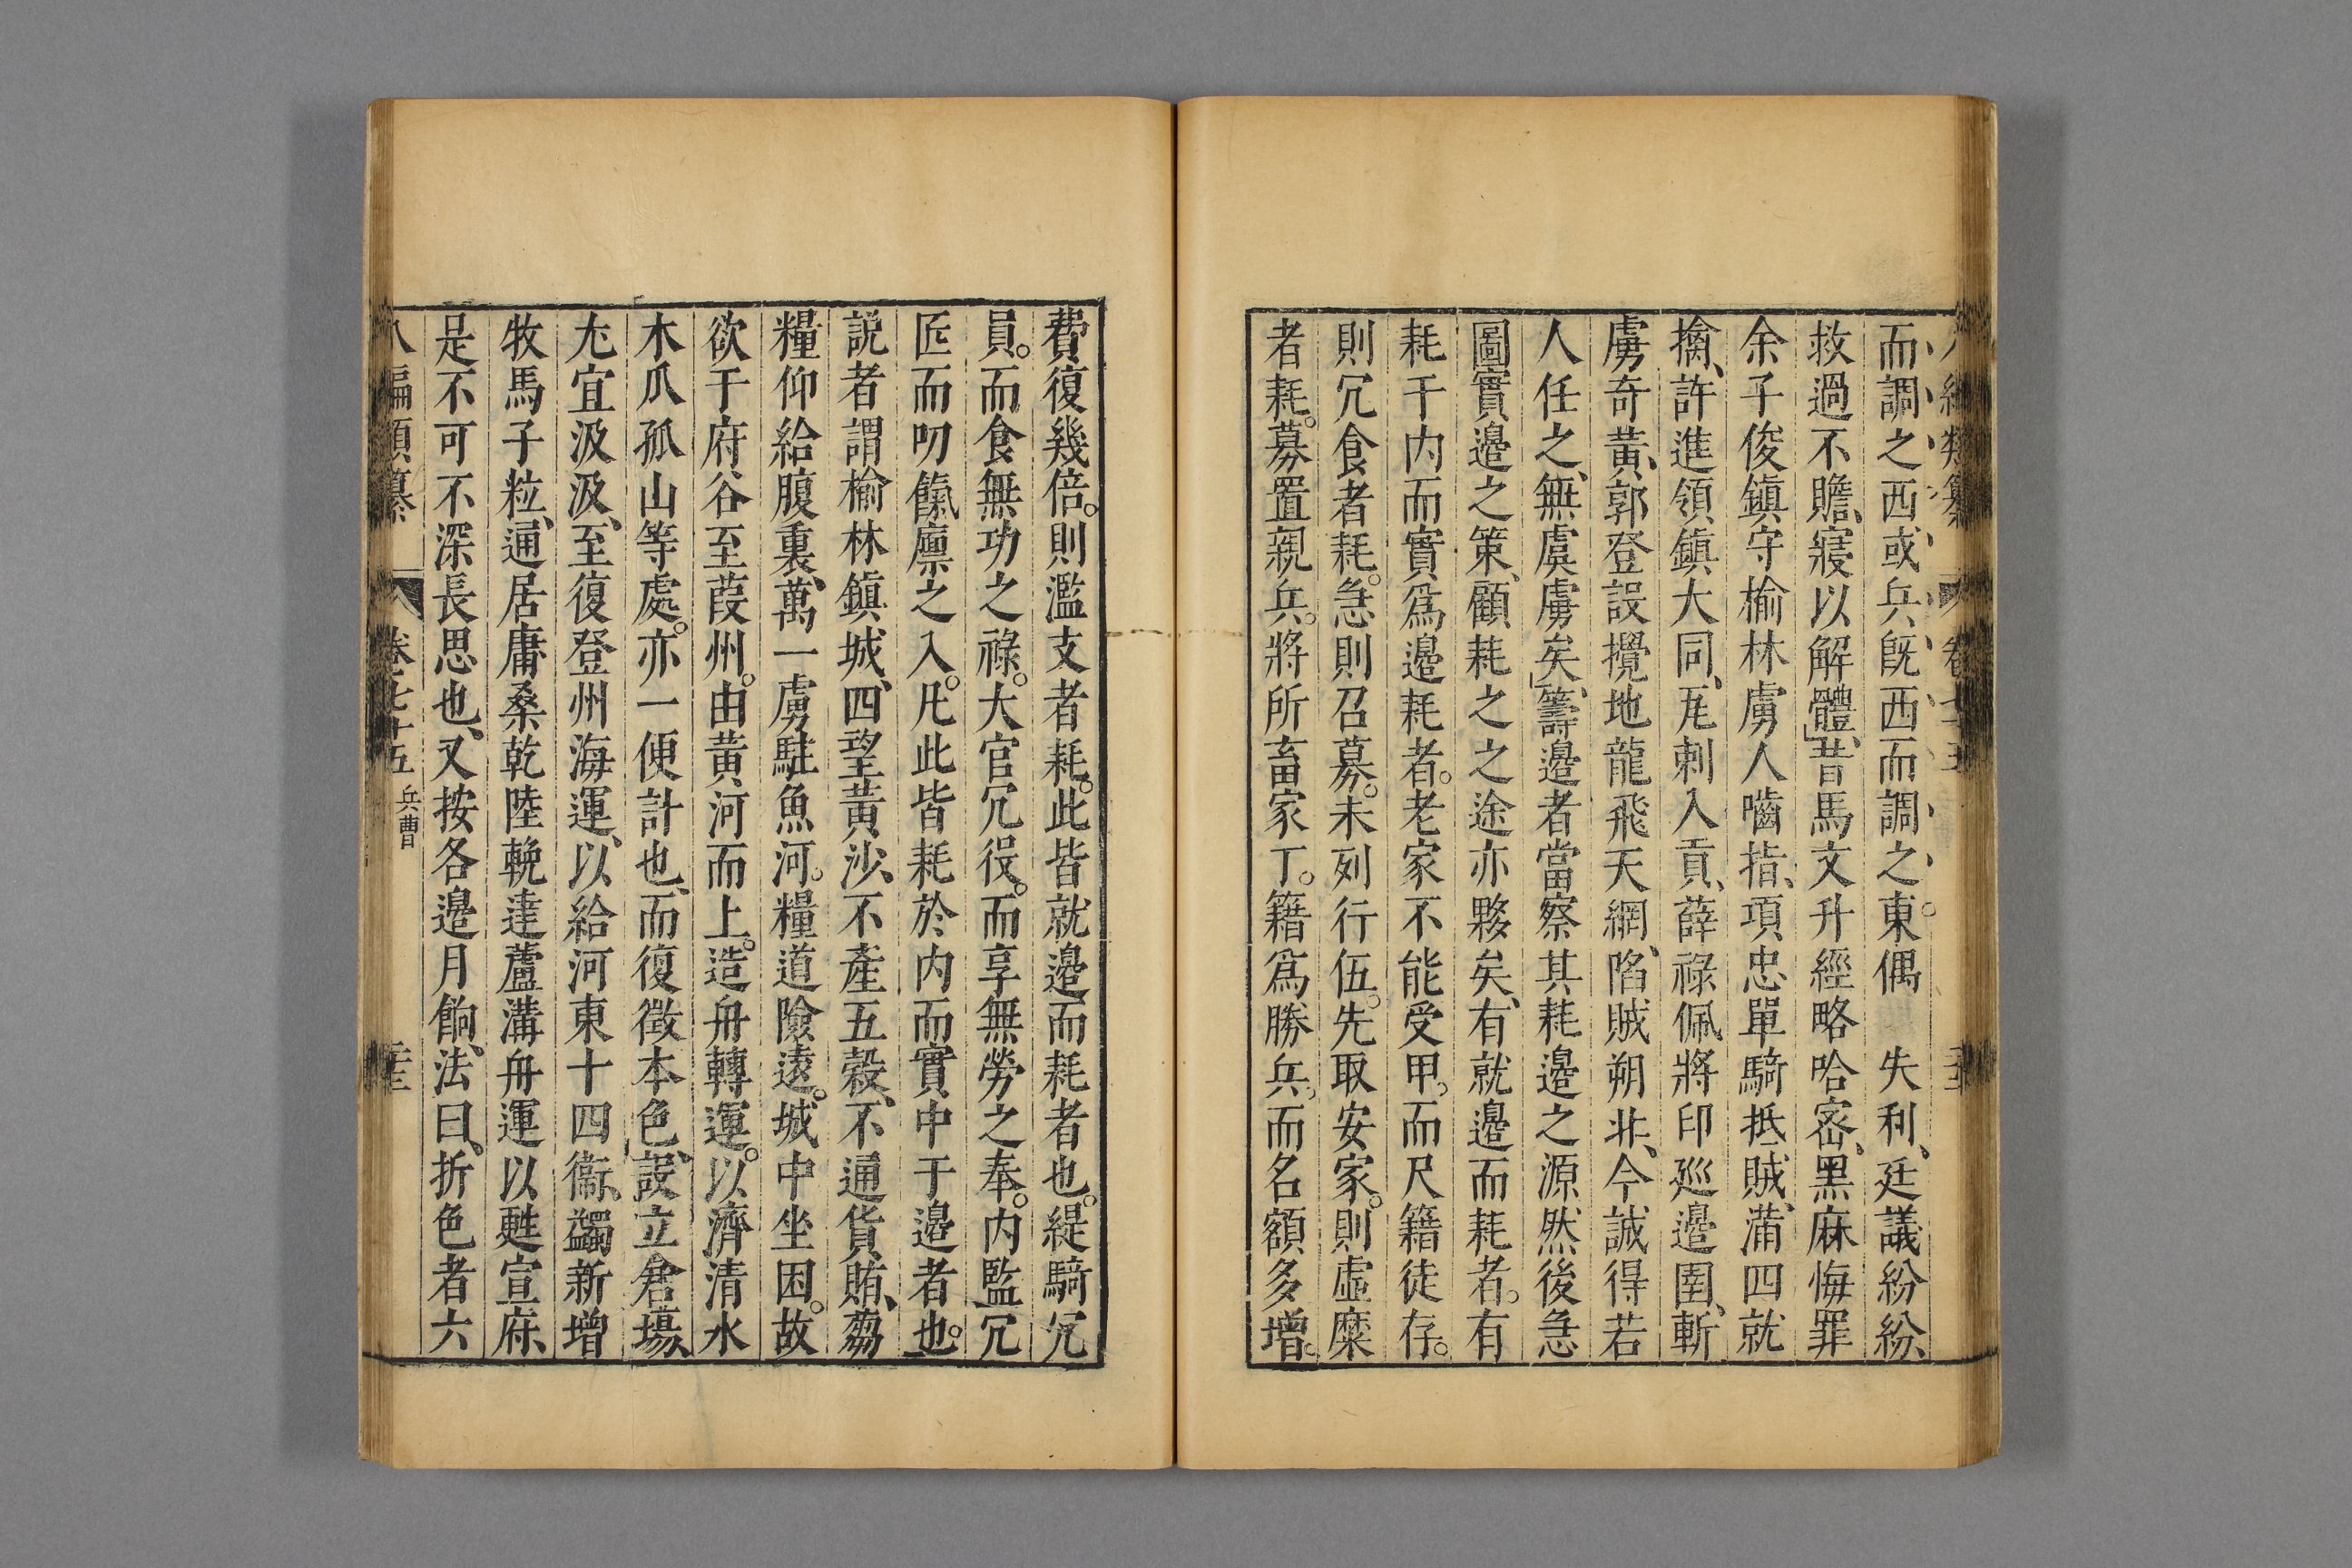 而調之西或兵既西而調之東偶　失利廷議紛紛
救過不贍寢以解體昔馬文升經略哈密黑麻悔罪
余子俊鎮守榆林虜人嚙指項忠單騎抵賊蒲四就
擒許進領鎮大同瓦剌入貢薛祿佩將印廵邊圉斬
虜奇黃郭登設攪地龍飛天網陷賊朔北今誠得若
人任之無虞虜矣籌邊者當察其耗邊之源然後急
圖實邊之策顧耗之之途亦夥矣有就邊而耗者有
耗于内而實爲邊耗者老家不能受甲而尺籍徒存
則冗食者耗急則召募未列行伍先取安家則虛糜
者耗募置親兵將所畜家丁籍爲勝兵而名額多增
費復幾倍則濫支者耗此皆就邊而耗者也緹騎冗
員而食無功之祿大官冗役而享無勞之奉内監冗
匠而叨餼廪之入凡此皆耗於内而實中于邊者也
說者謂榆林鎮城四望黃沙不產五穀不通貨賄芻
糧仰給腹裏萬一虜駐魚河糧道險遠城中坐困故
欲于府谷至葭州由黃河而上造舟轉運以濟清水
木瓜孤山等處亦一便計也而復徵本色設立倉場
尤宜汲汲至復登州海運以給河東十四衞蠲新增
牧馬子粒通居庸桑乾陸輓達蘆溝舟運以甦宣府
是不可不深長思也又按各邊月餉法曰折色者六
八編類纂　卷之七十五　兵曹